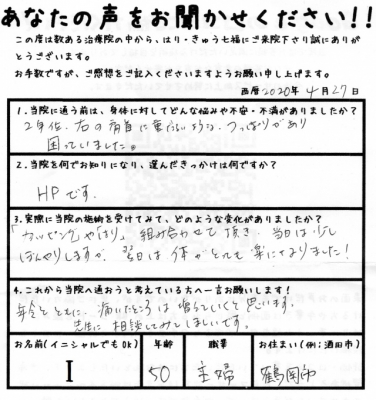 あなたの声をお聞かせください!!
この度は数ある治療院の中から、はり・きゅう七福にご来院下さり誠にありが
とうございます。
お手数ですが、ご感想をご記入くださいますようお願い申し上げます。
西暦2020年 4月27日
1.当院に通う前は、身体に対してどんな悩みや不安・不満がありましたか?
2年位、右の肩首に重だるいような、つっぱりがあり
困っていました。
2.当院を何でお知りになり、選んだきっかけは何ですか?
HPです。
3.実際に当院の施術を受けてみて、どのような変化がありましたか?
「カッピング」や「はり」組み合わせて頂き、当日は少し
ぼんやりしますが、翌日は体がとても楽になりました!
4.これから当院へ通おうと考えている方へ一言お願いします!
年令とともに、痛いところは増えていくと思います。
先生に相談してみてほしいです。
お名前(イニシャルでもOK) 年齢 職業 お住まい(例:酒田市)
I 50 主婦 鶴岡市